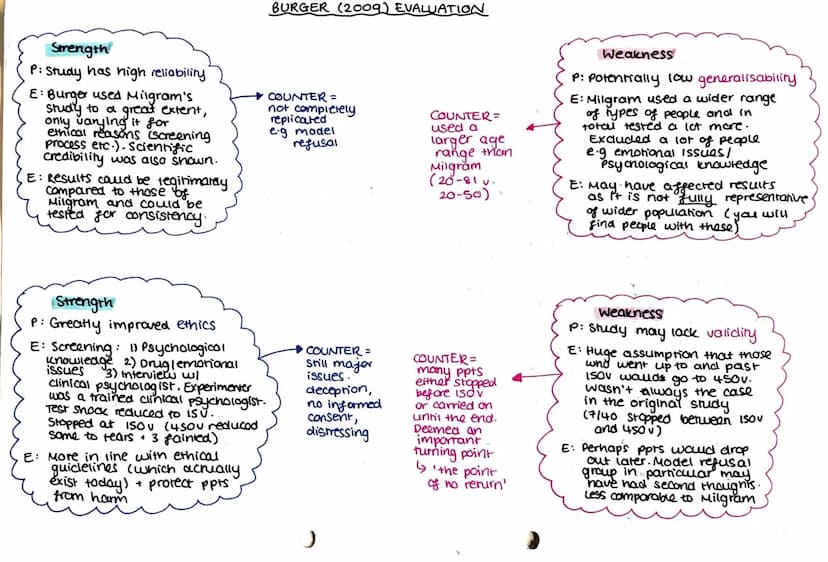 BURGER (2009) EVALUATION
Strength
P: Study has high reliability
E: Burger used Milgram's
study to a great extent,
only varying it for
ethical reasons (screening
process etc.). Scientific
credibility was also shown.
E: Results could be legitimately
compared to those of
Milgram and could be
tested for consistency.
COUNTER =
not completely
replicated
e.g model
refusal
Weakness
P: Potentially low generalisability
E: Milgram used a wider range
of types of people and in
total tested a lot more.
Excluded a lot of people
e.g emotional issues/
psychological knowledge
E: May have affected results
as it is not fully representative
of wider population (you will
find people with these)
COUNTER =
used a
larger age
range than
Milgram
(20-81 v.
20-50)
Strength
P: Greatly improved ethics
E: Screening: 1) Psychological
knowledge 2) Drug/emotional
issues 3) Interview w/
clinical psychologist. Experimenter
was a trained clinical psychologist.
Test shock reduced to 15V.
Stopped at 150V (450V reduced
some to tears + 3 fainted)
E: More in line with ethical
guidelines (which actually
exist today) + protect ppts
from harm
COUNTER =
still major
issues.
deception,
no informed
consent,
distressing
Weakness
P: Study may lack validity
E: Huge assumption that those
who went up to and past
150V would go to 450V.
Wasn't always the case
in the original study
(7/40 stopped between 150V
and 450V)
E: Perhaps ppts would drop
out later. Model refusal
group in particular may
have had second thoughts.
Less comparable to Milgram
COUNTER =
many ppts
either stopped
before 150V
or carried on
until the end.
Deemed an
important
turning point
↳ 'the point
of no return'